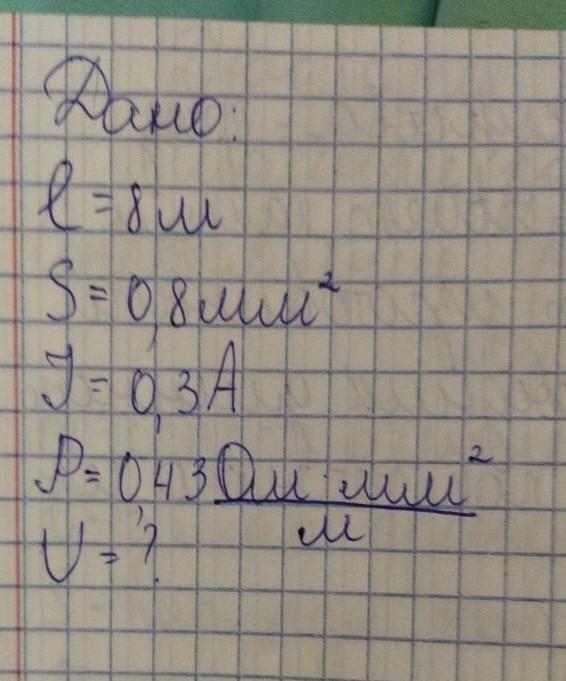 Дано:
l = 8 м
S = 0,8 мм²
J = 0,3 А
ρ = 0,43 Ом · мм²
м
U = ?